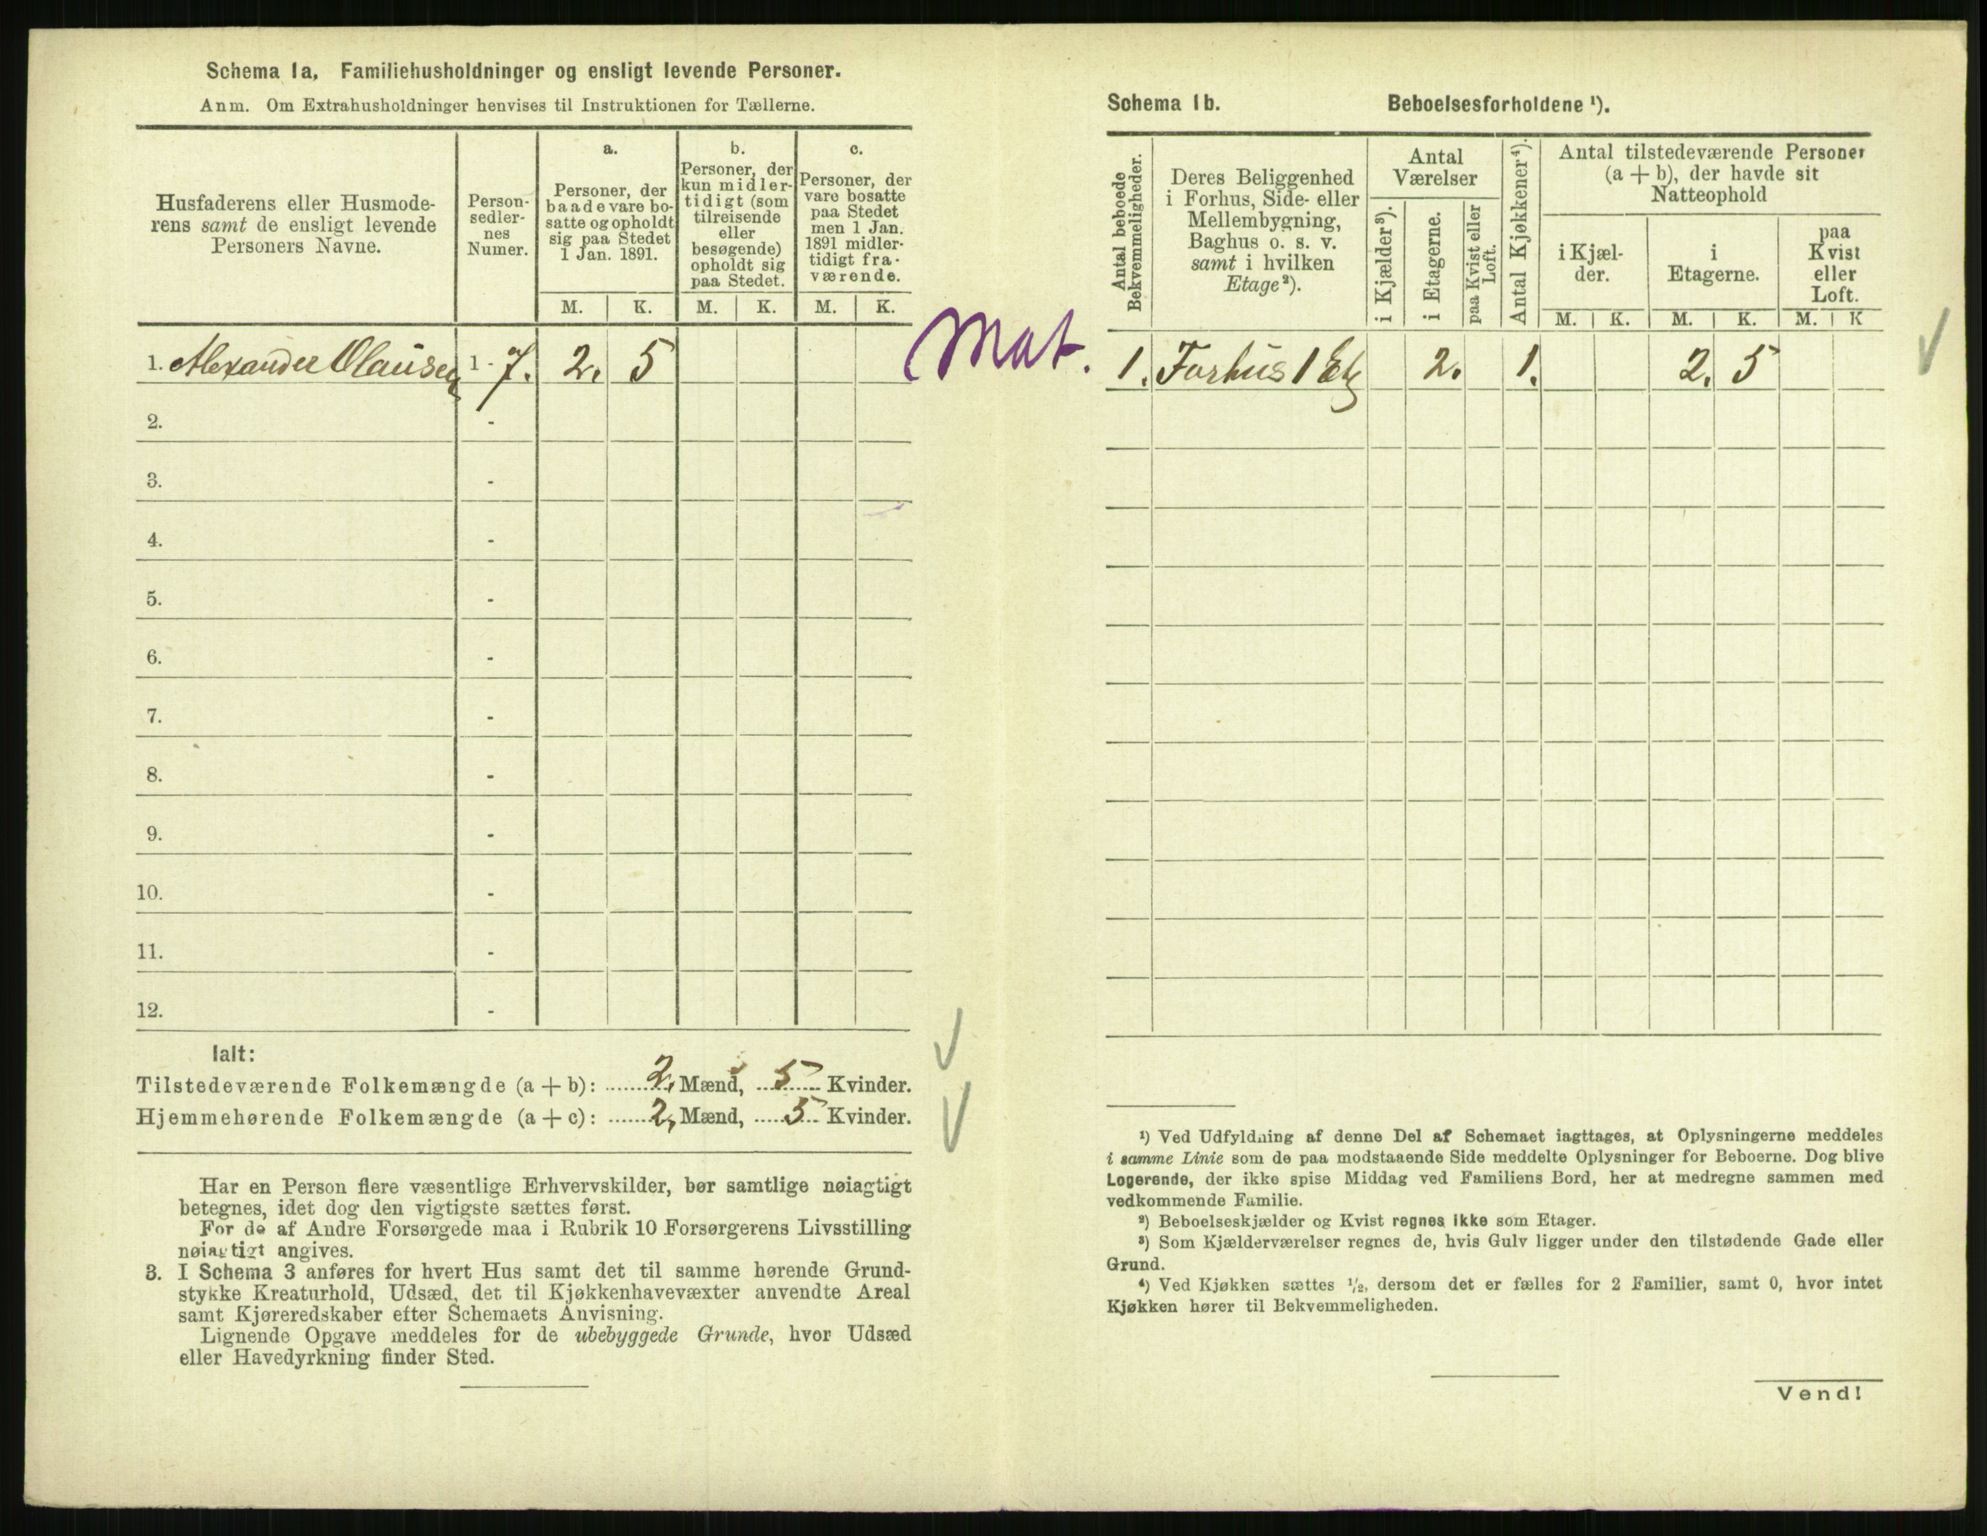 Schema 1a, Familiehusholdninger og ensligt levende Personer.
Anm. Om Extrahusholdninger henvises til Instruktionen for Tællerne.
Husfaderens eller Husmode-
rens samt de ensligt levende
Personers Navne.
Person-
sedler-
nes
Numer.
a.
Personer, der
baade vare bo-
satte og opholdt
sig paa Stedet
1 Jan. 1891.
M. K.
b.
Personer, der
kun midler-
tidigt (som
tilreisende
eller
besøgende)
opholdt sig
paa Stedet.
M. K.
c.
Personer, der
vare bosatte
paa Stedet
men 1 Jan.
1891 midler-
tidigt fra-
værende.
M. K.
1. Alexander Olausen 1 - 7. 2. 5
2. -
3. -
4. -
5. -
6. -
7. -
8. -
9. -
10. -
11. -
12. -
Ialt:
Tilstedeværende Folkemængde (a + b): 2. Mænd, 5 Kvinder.
Hjemmehørende Folkemængde (a + c): 2, Mænd, 5 Kvinder.
Har en Person flere væsentlige Erhvervskilder, bør samtlige nøiagtigt
betegnes, idet dog den vigtigste sættes først.
For de af Andre Forsørgede maa i Rubrik 10 Forsørgerens Livsstilling
nøiagtigt angives.
3. I Schema 3 anføres for hvert Hus samt det til samme hørende Grund-
stykke Kreaturhold, Udsæd, det til Kjøkkenhavevæxter anvendte Areal
samt Kjøreredskaber efter Schemaets Anvisning.
Lignende Opgave meddeles for de ubebyggede Grunde, hvor Udsæd
eller Havedyrkning finder Sted.
Mat.
Schema 1b. Beboelsesforholdene ¹).
Antal beboede
Bekvemmeligheder.
Deres Beliggenhed
i Forhus, Side- eller
Mellembygning,
Baghus o. s. v.
samt i hvilken
Etage²).
Antal
Værelser
i Kjælder³).
i Etagerne.
paa Kvist eller
Loft.
Antal Kjøkkener⁴).
Antal tilstedeværende Personer
(a + b), der havde sit
Natteophold
i Kjæl-
der.
M. K.
i
Etagerne.
M. K.
paa
Kvist
eller
Loft.
M. K
1. Forhus 1 Etg 2. 1. 2. 5
¹) Ved Udfyldning af denne Del af Schemaet iagttages, at Oplysningerne meddeles
i samme Linie som de paa modstaaende Side meddelte Oplysninger for Beboerne. Dog blive
Logerende, der ikke spise Middag ved Familiens Bord, her at medregne sammen med
vedkommende Familie.
²) Beboelseskjælder og Kvist regnes ikke som Etager.
³) Som Kjælderværelser regnes de, hvis Gulv ligger under den tilstødende Gade eller
Grund.
⁴) Ved Kjøkken sættes ½, dersom det er fælles for 2 Familier, samt 0, hvor intet
Kjøkken hører til Bekvemmeligheden.
Vend!